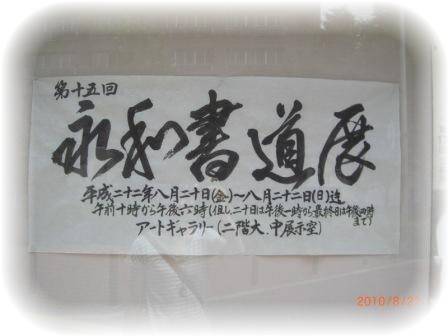 第十五回
永和書道展
平成二十二年八月二十日(金)～八月二十二日(日)迄
午前十時から午後六時(但し、二十日は午後一時から最終日は午後四時まで)
アートギャラリー(二階大、中展示室)